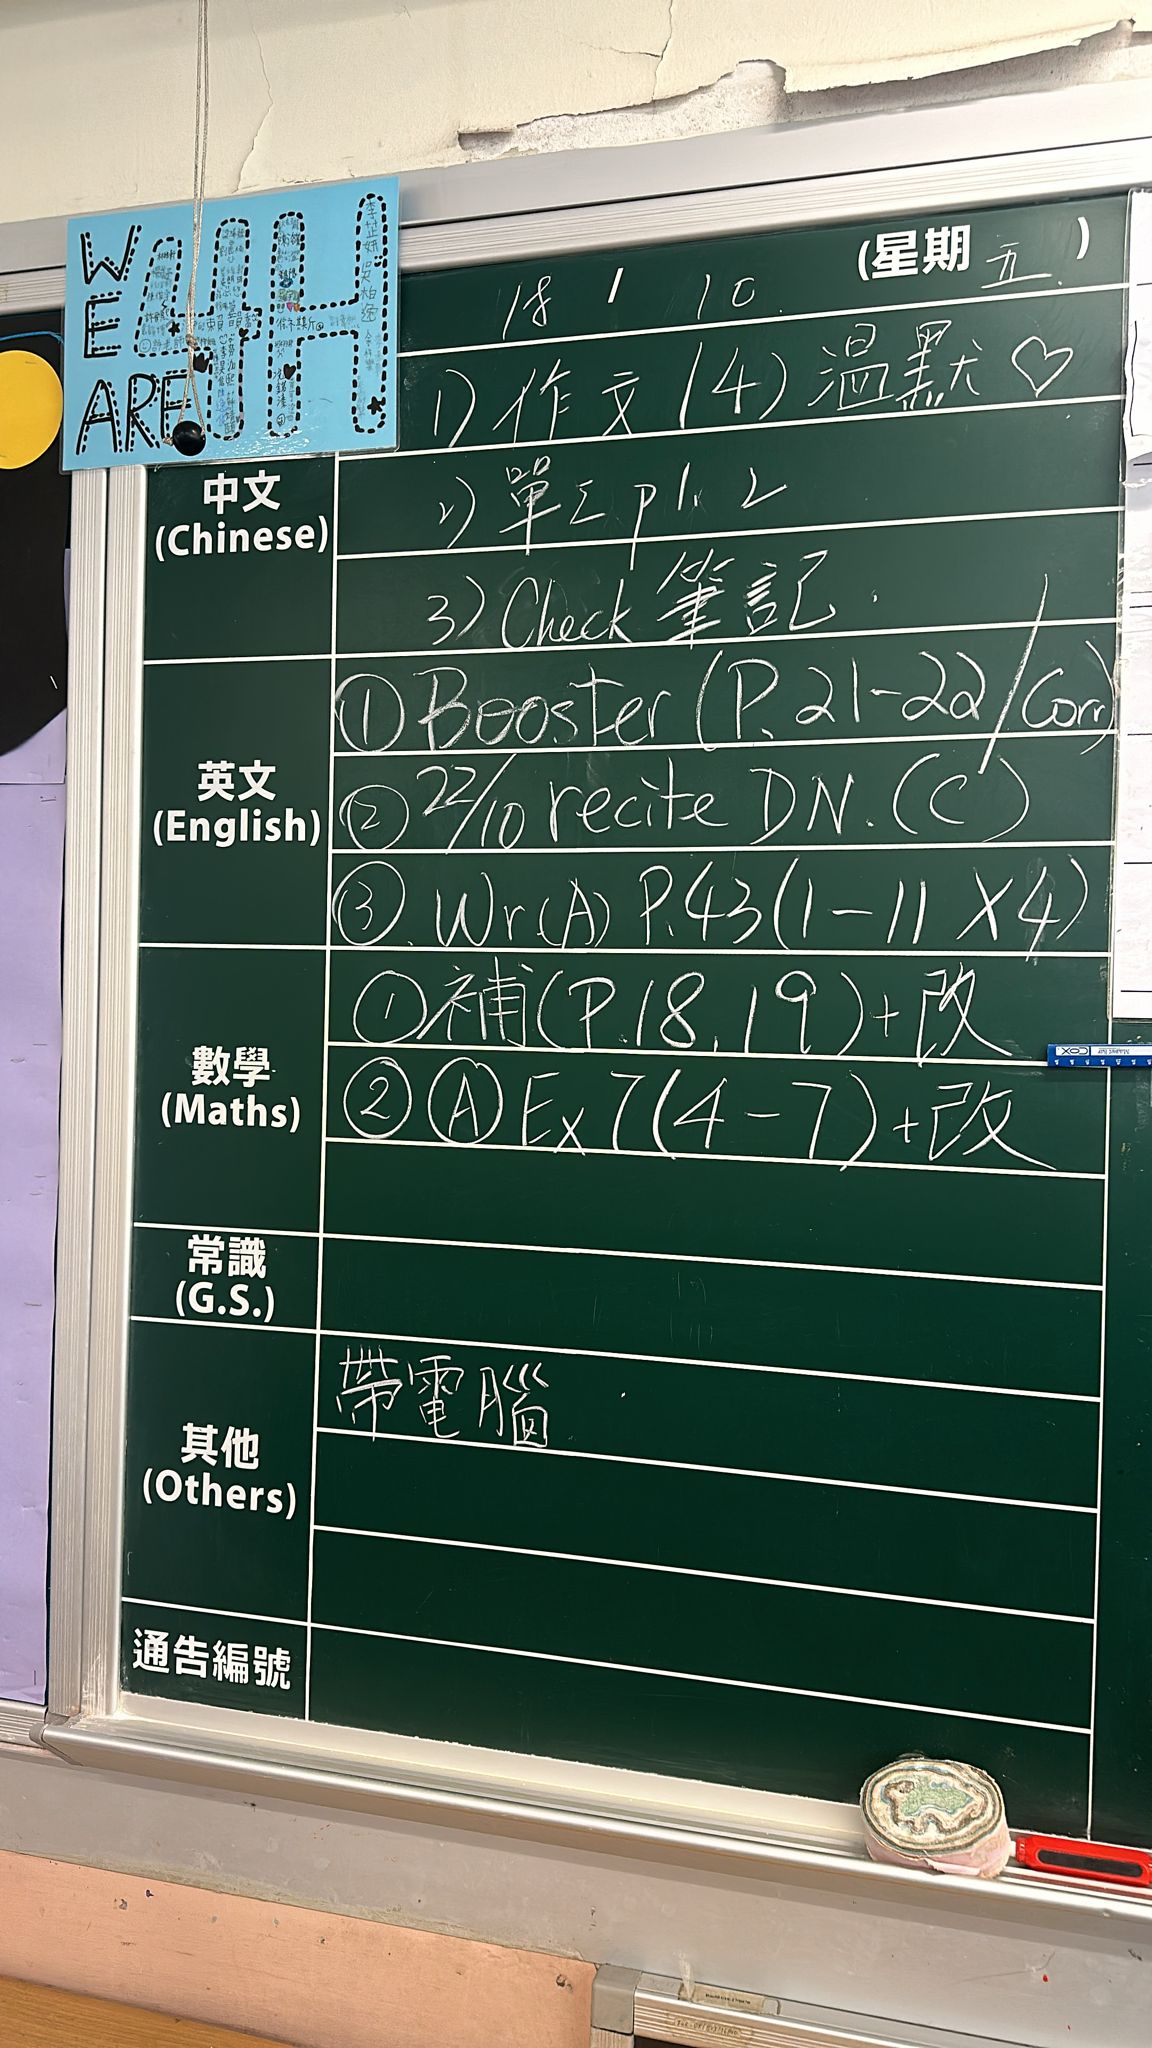 WE ARE 4H
18 / 10 (星期五)
1) 作文(4) 溫默♡
中文 (Chinese)
2) 單三 p1, 2
3) Check 筆記.
英文 (English)
① Booster (P.21-22/Corr)
② 22/10 recite DN. (C)
③. Wr(A) P.43(1-11 X4)
數學 (Maths)
① 補(P.18, 19)+改
② Ⓐ Ex 7(4-7)+改
常識 (G.S.)
其他 (Others)
帶電腦
通告編號